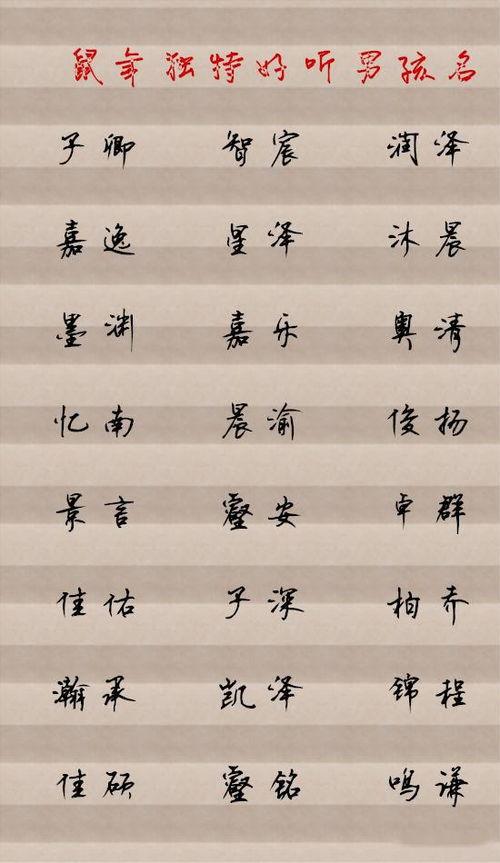 鼠年独特好听男孩名
子卿 智宸 润泽
嘉逸 星泽 沐晨
墨渊 嘉乐 奥清
忆南 晨渝 俊扬
景言 壑安 卓群
佳佑 子深 柏乔
瀚承 凯泽 锦程
佳硕 壑铭 鸣谦